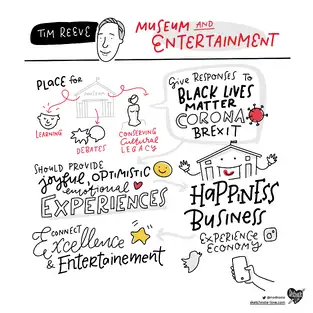 TIM REEVE
MUSEUM AND
ENTERTAINMENT
PLACE FOR
MUSEUM
LEARNING
DEBATES
CONSERVING
Cultural
LEGACY
GIVE RESPONSES TO
BLACK LIVES
MATTER
CORONA
BREXIT
SHOULD PROVIDE
joyful, OPTIMISTIC
emotional
EXPERIENCES
HAPPINESS
BUSINESS
EXPERIENCE
ECONOMY
CONNECT
Excellence
& Entertainement
sketchnote-love.com